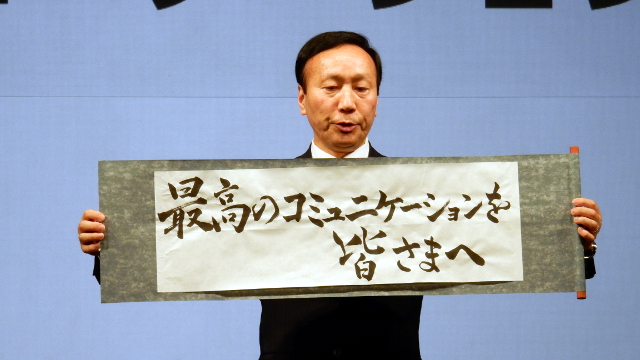 最高のコミュニケーションを
皆さまへ